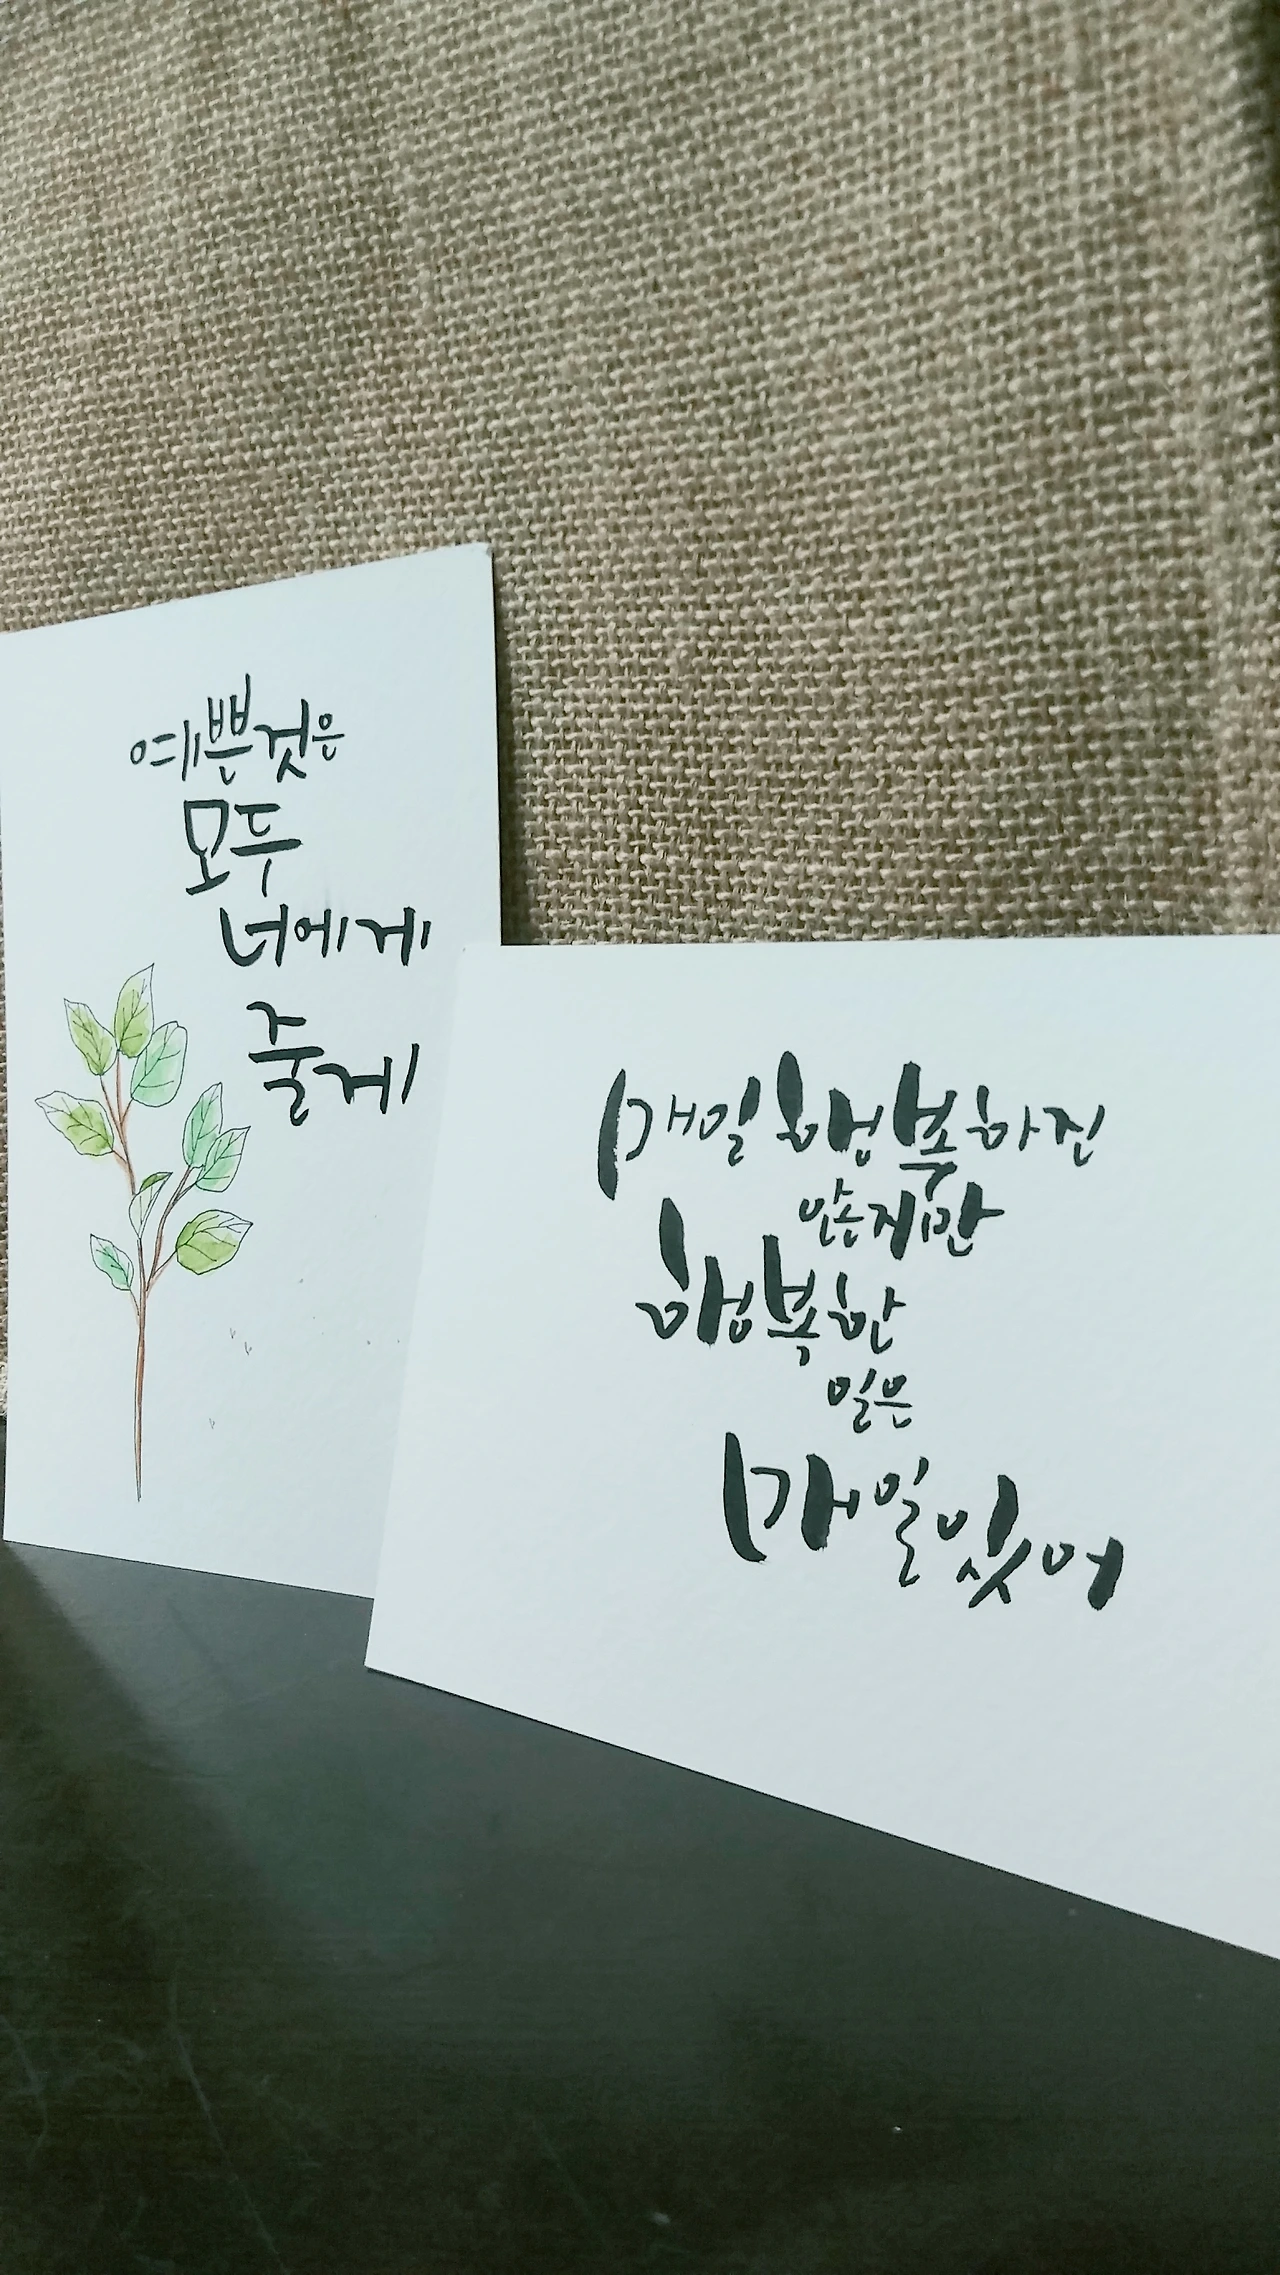 예쁜것은
모두
너에게
줄게
매일 행복하진
않지만
행복한
일은
매일 있어